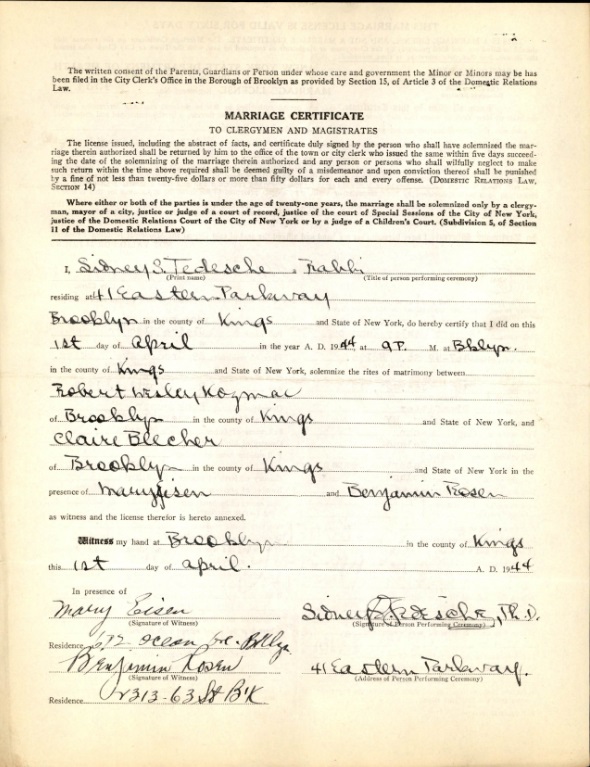 The written consent of the Parents, Guardians or Person under whose care and government the Minor or Minors may be has
been filed in the City Clerk's Office in the Borough of Brooklyn as provided by Section 15, of Article 3 of the Domestic Relations
Law.
MARRIAGE CERTIFICATE
TO CLERGYMEN AND MAGISTRATES
The license issued, including the abstract of facts, and certificate duly signed by the person who shall have solemnized the mar-
riage therein authorized shall be returned by him to the office of the town or city clerk who issued the same within five days succeed-
ing the date of the solemnizing of the marriage therein authorized and any person or persons who shall wilfully neglect to make
such return within the time above required shall be deemed guilty of a misdemeanor and upon conviction thereof shall be punished
by a fine of not less than twenty-five dollars or more than fifty dollars for each and every offense. (DOMESTIC RELATIONS LAW,
SECTION 14)
Where either or both of the parties is under the age of twenty-one years, the marriage shall be solemnized only by a clergy-
man, mayor of a city, justice or judge of a court of record, justice of the court of Special Sessions of the City of New York,
justice of the Domestic Relations Court of the City of New York or by a judge of a Children's Court. (Subdivision 5, of Section
11 of the Domestic Relations Law)
I, Sidney S. Tedesche, Rabbi
(Print name) (Title of person performing ceremony)
residing at 41 Eastern Parkway
Brooklyn in the county of Kings and State of New York, do hereby certify that I did on this
1st day of April in the year A. D. 1944 at 9 P. M. at Bklyn.
in the county of Kings and State of New York, solemnize the rites of matrimony between
Robert Wesley Kozmac
of Brooklyn in the county of Kings and State of New York, and
Claire Blecher
of Brooklyn in the county of Kings and State of New York in the
presence of Mary Eisen and Benjamin Rosen
as witness and the license therefor is hereto annexed.
Witness my hand at Brooklyn in the county of Kings
this 1st day of April. A. D. 1944
In presence of
Mary Eisen Sidney S. Tedesche, Ph.D.
(Signature of Witness) (Signature of Person Performing Ceremony)
Residence Ocean Ave. Bklyn
Benjamin Rosen 41 Eastern Parkway.
(Signature of Witness) (Address of Person Performing Ceremony)
Residence 2313-63 St B'K